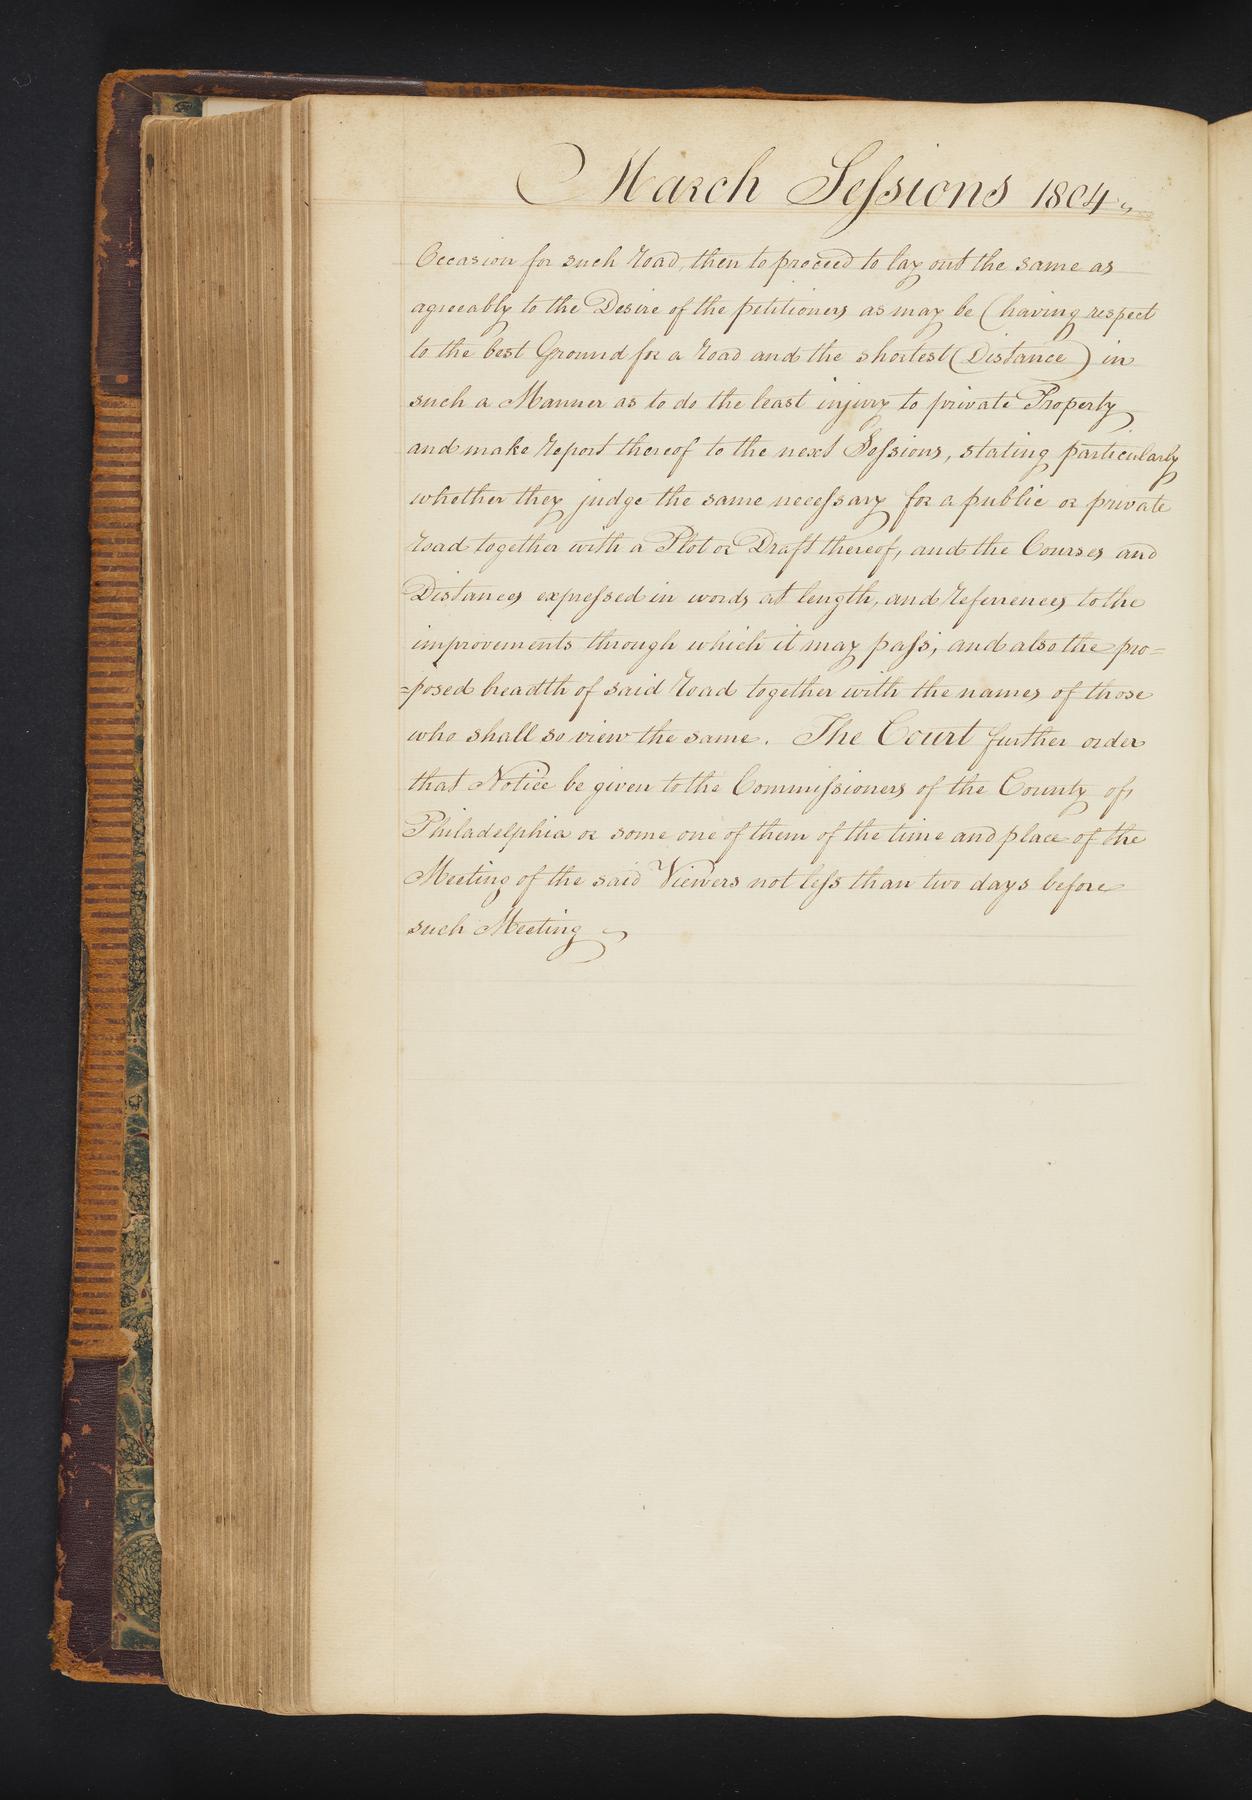 March Sessions 1804
Occasion for such road, then to proceed to lay out the same as
agreeably to the Desire of the petitioners as may be (having respect
to the best Ground for a road and the shortest (Distance) in
such a Manner as to do the least injury to private Property
and make report thereof to the next Sessions, stating particularly
whether they judge the same necessary for a public or private
road together with a Plot or Draft thereof, and the Courses and
Distances expressed in words at length, and references to the
improvements through which it may pass; and also the pro=
=posed breadth of said road together with the names of those
who shall so view the same. The Court further order
that Notice be given to the Commissioners of the County of
Philadelphia or some one of them of the time and place of the
Meeting of the said Viewers not less than two days before
such Meeting